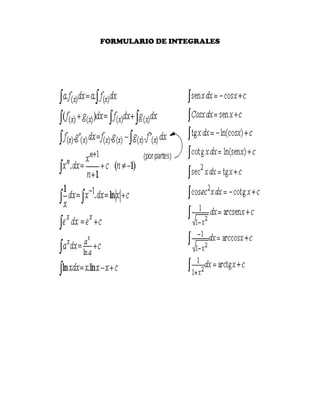 FORMULARIO DE INTEGRALES
∫a.f₍ₓ₎dx=a.∫f₍ₓ₎dx
∫(f₍ₓ₎ + g₍ₓ₎)dx=∫f₍ₓ₎dx+∫g₍ₓ₎dx
∫f₍ₓ₎.g'₍ₓ₎dx=f₍ₓ₎.g₍ₓ₎ − ∫g₍ₓ₎.f'₍ₓ₎ dx
(por partes)
∫xⁿ.dx= xⁿ⁺¹/n+1 + c (n ≠ −1)
∫1/x dx=∫x⁻¹.dx=ln|x|+c
∫eˣ dx =eˣ +c
∫aˣdx= aˣ/ln a +c
∫ln xdx=x.ln x−x+c
∫sen x dx= − cosx+c
∫Cosx dx= senx+c
∫tg x dx= − ln(cosx)+c
∫cotg x dx= ln(senx)+c
∫sec² x dx= tgx+c
∫cosec²x dx= − cotgx+c
∫1/√(1−x²) dx= arcsenx+c
∫−1/√(1−x²) dx= arccosx+c
∫1/(1+x²) dx= arctgx+c